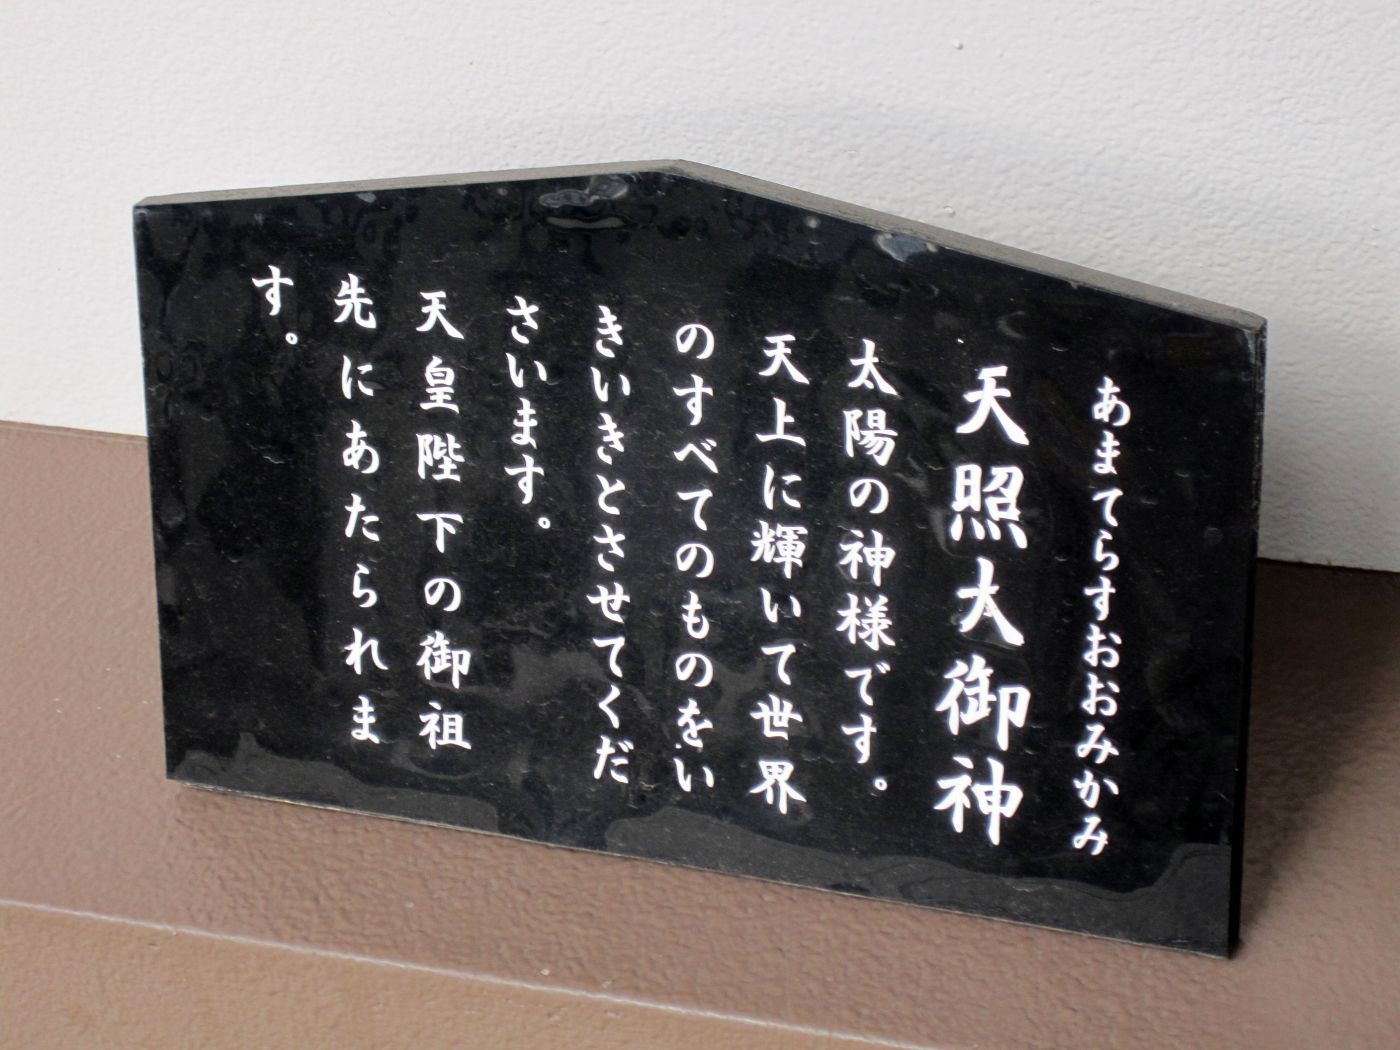 あまてらすおおみかみ
天照大御神
太陽の神様です。
天上に輝いて世界
のすべてのものをい
きいきとさせてくだ
さいます。
天皇陛下の御祖
先にあたられま
す。